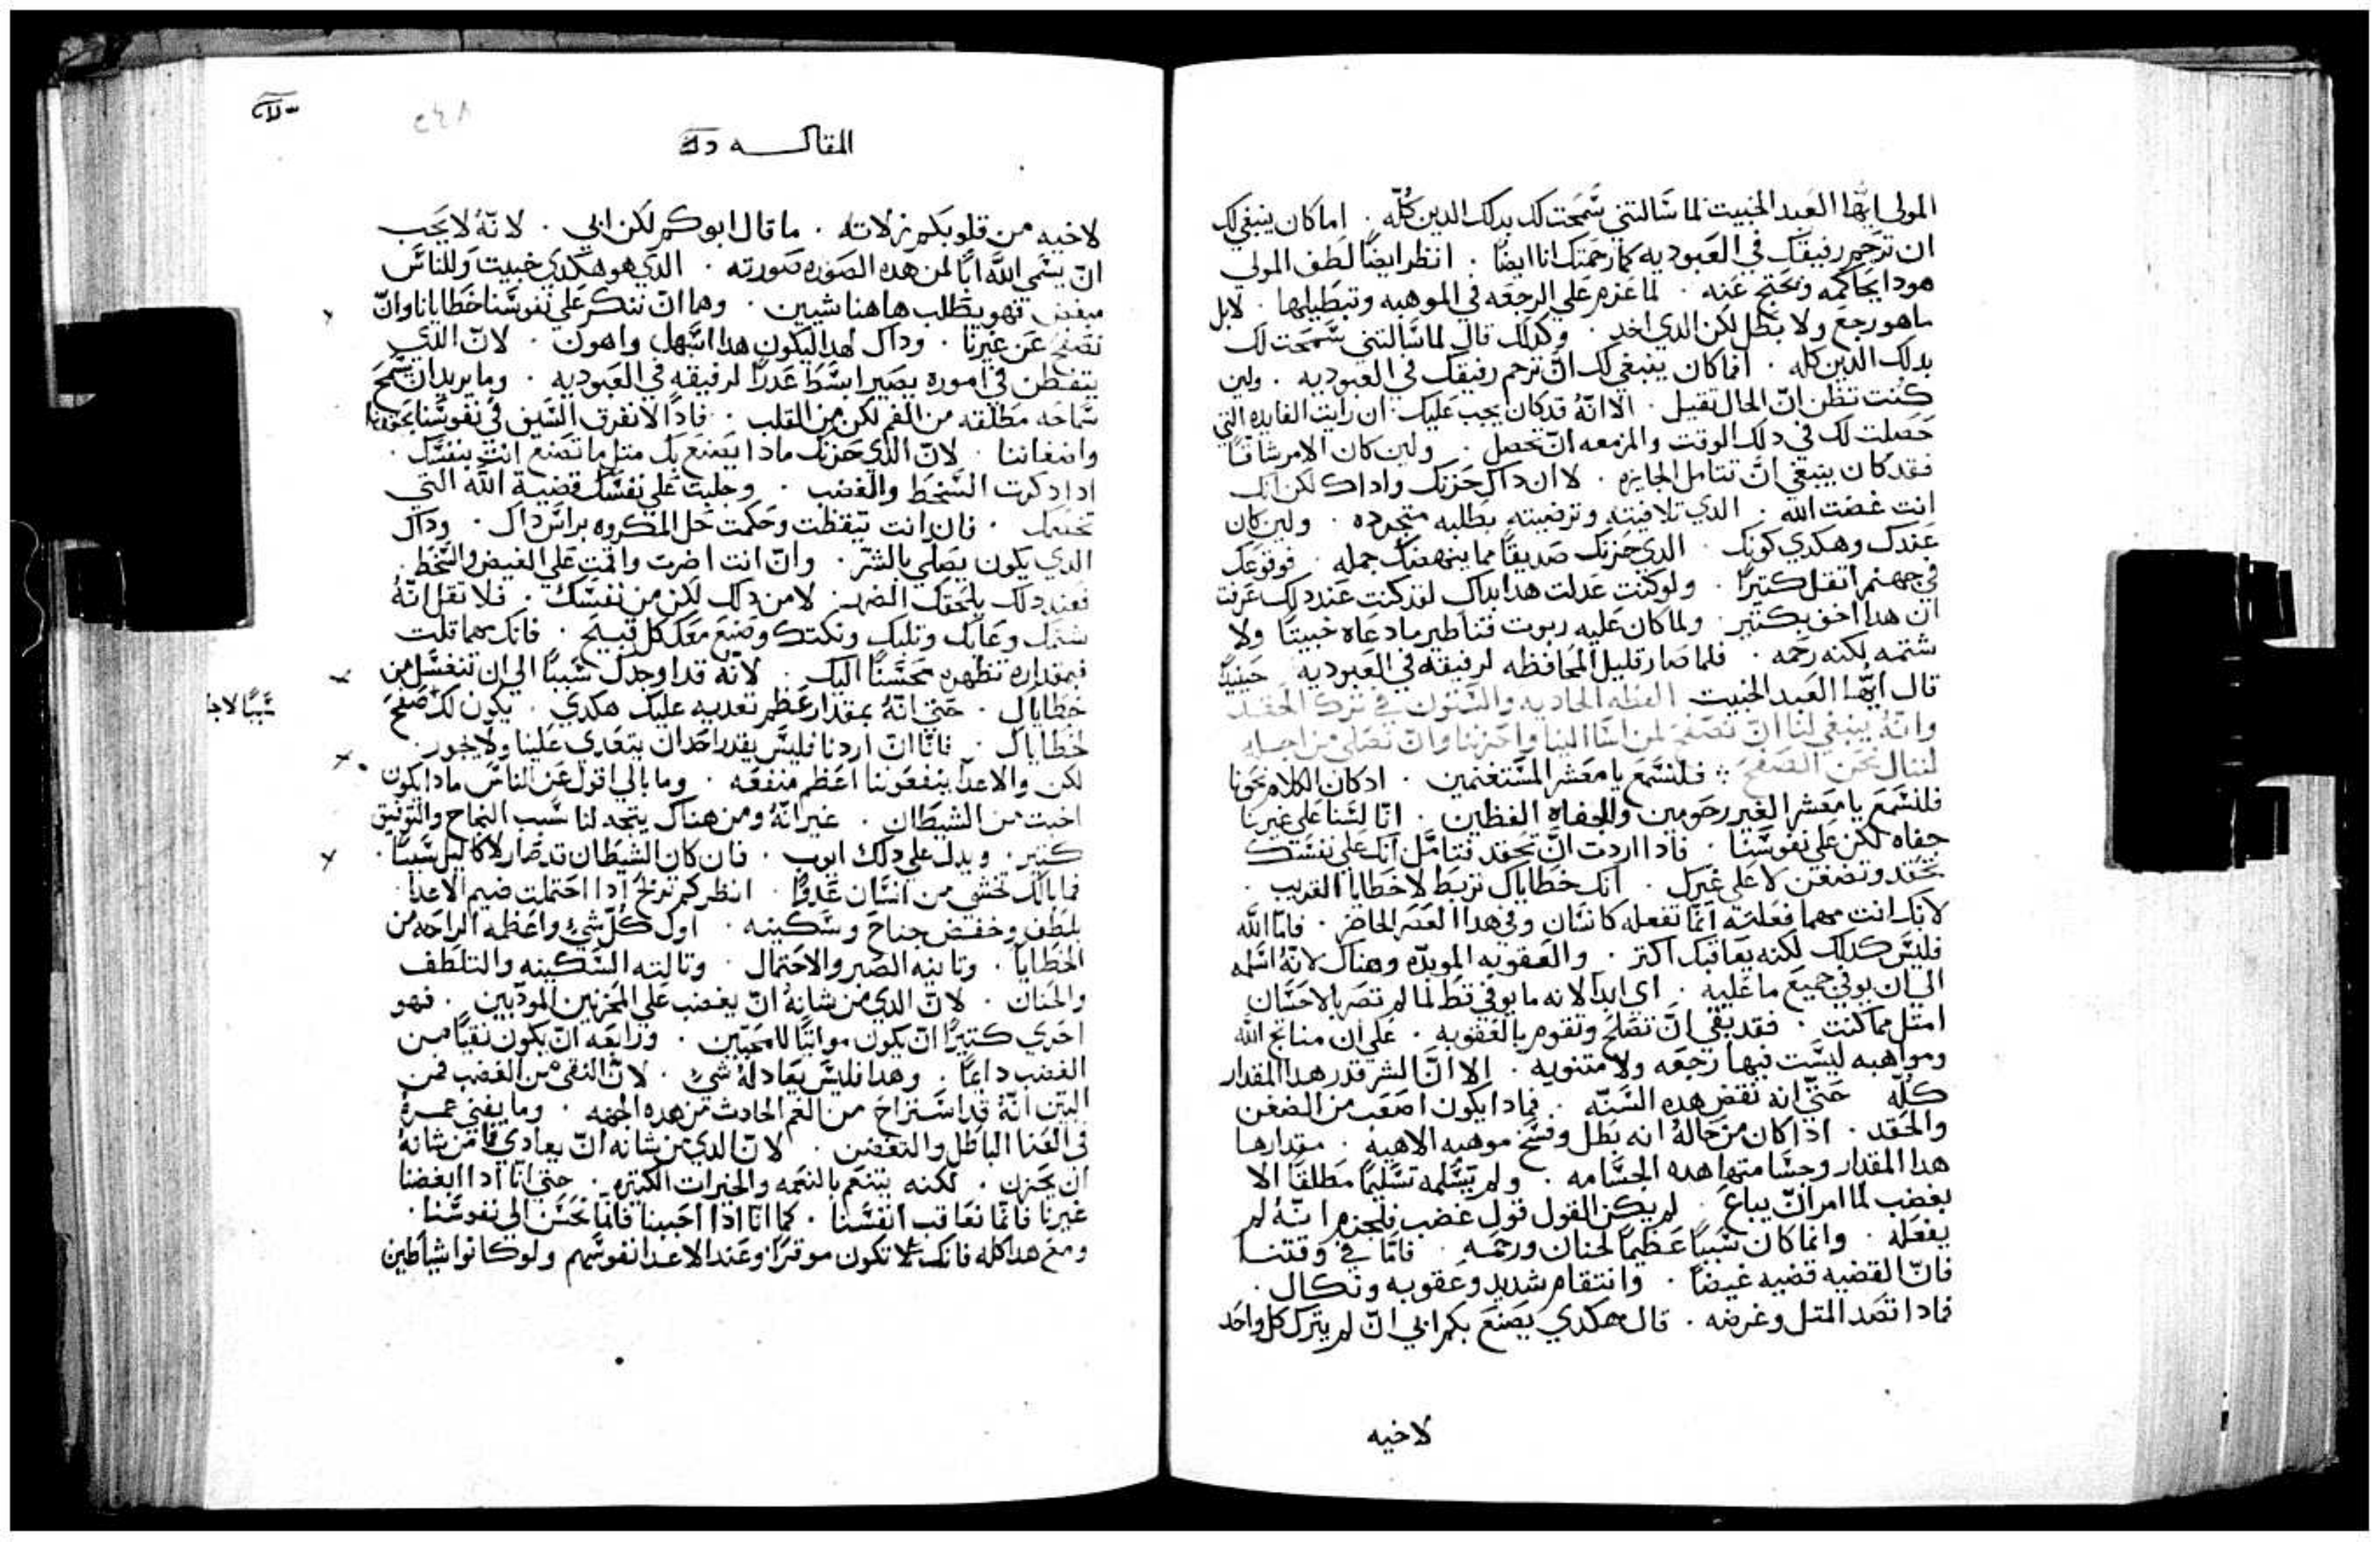 المولي ايها العبد الخبيت لما سَالتني سَمَحت لك بدلك الدين كلّه . اما كان ينبغي لك
ان ترحم رفيقك في العبوديه كما رحمتك انا ايضًا . انظر ايضًا لطف المولي
هودا يحاكمه ويحتج عنه . لما عزم علي الرجعه في الموهبه وتبطيلها . لا بل
ما هو رجع ولا بطل لكن الدي اخد . وكدلك قال لما سَالتني سَمَحت لك
بدلك الدين كله . افما كان ينبغي لك ان ترحم رفيقك في العبوديه . ولين
كنت تظن انّ الحال تقيل . الا انّه قد كان يجب عليك ان رايت الفايده التي
حَصلت لك في دلك الوقت والمزمعه انّ تحصل . ولين كان الامر شاقًا
فقد كان ينبغي انّ تتامل الجايزه . لا ان داك حَزنك واداك لكن انك
انت غضت الله . الدي تلافيته وترضيته بطلبه متجرده . ولين كان
عندك وهكدي كونك . الدي حزنك صديقًا مما ينهضك جمله . فوقوعك
في جهنم اتقل كتيرًا . ولو كنت عدلت هدا بداك لقد كنت عند دلك عرفت
ان هدا اخف بكتير . ولما كان عليه ربوت قناطير ما دعاه خبيتًا ولا
شتمه لكنه رحمه . فلما صار قليل المحافظه لرفيقه في العبوديه حينيدٍ
قال ايها العبد الخبيت العظه الحاديه والستون في ترك الحقد
وانّه ينبغي لنا انّ نصفح لمن اسَا الينا واحزننا وان نصلي من اجله
لننال نحن الصفح فلنسَمع يا معشر المسَتغنمين . ادكان الكلام نحونا
فلنسَمع يا معشر الغير رحومين والجفاه الفظين . انّا لسَنا علي غيرنا
جفاه لكن علي نفوسَنا . فادا اردت انّ تحقد فتامّل انك علي نفسَك
تحقد وتضغن لا علي غيرك . انك خطاياك تربط لا خطايا القريب .
لانك انت مهما فعلته انّما تفعله كانسَان وفي هدا العصر الحاضر . فامّا الله
فليسَ كدلك لكنه يعاقبك اكتر . والعقوبه الموبدّه وهناك لانّه اسَلمه
الي ان يوفي جميع ما عليه . اي ابدًا لانه ما يوفي قط لما لم تصر بالاحسَان
امتل مما كنت . فقد بقي انّ تصلح وتقوم بالعقوبه . علي ان منايح الله
ومواهبه ليسَت فيها رجعه ولا متنويه . الا انّ الشر قدر هدا المقدار
كلّه حتي انه نقض هده السَنّه . فمادا يكون اصعب من الضغن
والحقد . ادا كان من حاله انه بطل وفسَخ موهبه الاهيه . مقدارها
هدا المقدار وجسَامتها هده الجسَامه . ولم يسَلمه تسَليمًا مطلقًا الا
بغضب لما امر انّ يباع . لم يكن القول قول غضب فلجزم انّه لم
يفعله . وانما كان سَببًا عظيمًا لحنان ورحمه . فامّا في وقتنا
فانّ القضيه قضيه غيضًا . وانتقام شديد وعقوبه ونكال .
فمادا قصد المتل وغرضه . قال هكدي يصنع بكم ابي انّ لم يترك كل واحد
لاخيه
المقاله
لاخيه من قلوبكم زلاته . ما قال ابوكم لكن ابي . لانّه لا يجب
انّ يسَمي الله ابًا لمن هده الصوره صورته . الدي هو هكدي خبيت وللناسَ
مبغض فهو يطلب هاهنا شيين . وهما انّ ننكر علي نفوسَنا خطايانا وانّ
نصفح عن غيرنا . وداك لهدا ليكون هدا اسَهل واهون . لانّ الدي
يتفطن في اموره يصير ابسَط عدرًا لرفيقه في العبوديه . وما يريد ان نسَمح
سَماحه مطلقه من الفم لكن من القلب . فادًا لا نفرق السَيف في نفوسَنا بحقدنا
واضغاننا . لانّ الدي حزنك مادا يصنع بك متل ما تصنع انت بنفسَك .
ادا دكرت السَخط والغضب . وجلبت علي نفسَك قضية الله التي
. فان انت تيقظت وحكمت حل المكروه براسَ داك . وداك
الدي يكون يصلي بالشر . وانّ انت اضرت واقمت علي الغيض والسَخط .
فعند دلك يلحقك الضرر لا من داك لكن من نفسَك . فلا تقل انّه
شتمك وعابك وتلبك ونكتك وصنع معك كل قبيح . فانك مهما قلت
فبمقداره تظهره محسَنًا اليك . لانّه قد اوجدك سَببًا الي ان تنغسَل من
خطاياك . حتي انّه بمقدار عظم تعديه عليك هكدي . يكون لك صفح
لخطاياك . فانّا ان اردنا فليسَ يقدر احد ان يتعدي علينا ولا يجور .
لكن والاعدا ينفعوننا اعظم منفعه . وما بالي اقول عن الناسَ مادا يكون
اخبت من الشيطان . غير انّه ومن هناك يتجه لنا سَبب النجاح والتوفيق
كتير . ويدلّ علي دلك ايوب . فان كان الشيطان قد صار لاكاليل سَببًا .
فما بالك تخشي من انسَان عدوًا . انظر كم تربح ادا احتملت ضيم الاعدا
بلطف وخفض جناح وسَكينه . اول كلّ شي واعظمه الراحه من
الخطايا . وتانيه الصبر والاحتمال . وتالته السَكينه والتلطف
والحنان . لانّ الدي من شانه انّ يغضب علي المحزنين المودبين . فهو
احري كتيرًا انّ يكون مواتيًا للمحبّين . ورابعه انّ يكون نقيًا من
الغضب دايمًا . وهدا فليسَ يعادله شي . لانّ النقي من الغضب فمن
البيّن انّه قد اسَتراح من الغم الحادث من هده الجهه . وما يفني عمره
في العنا الباطل والتغضب . لانّ الدي من شانه انّ يعادي فما من شانه
ان يحزن . لكنه يتنعم بالنعمه والخيرات الكتيره . حتي انّا ادا ابغضنا
غيرنا فانّما نعاقب انفسَنا . كما انّا ادا احببنا فانّما نحسَن الي نفوسَنا .
ومع هدا كله فانك تكون موقرًا وعند الاعدا نفوسَهم ولو كانوا شياطين
سَببًا لاجل